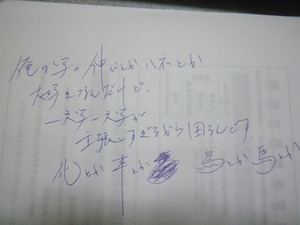 俺の字の神とか八ネとか
大好きなんだけど、
一文字一文字が
主張しすぎるから困るんです。
化とか車とか 鳥とか馬とか